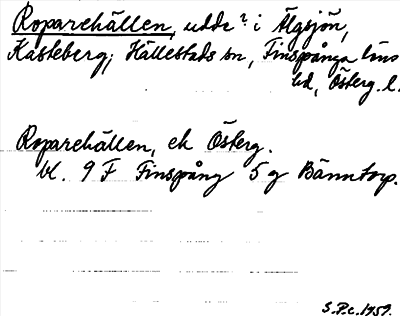 Roparehällen, udde? i Älgsjön,
Kasteberg; Hällestads sn, Finspånga läns
hd, Österg. l.
Roparehällen, ek Österg.
bl. 9 F Finspång 5 g Bänntorp.
S.P.c. 1959.